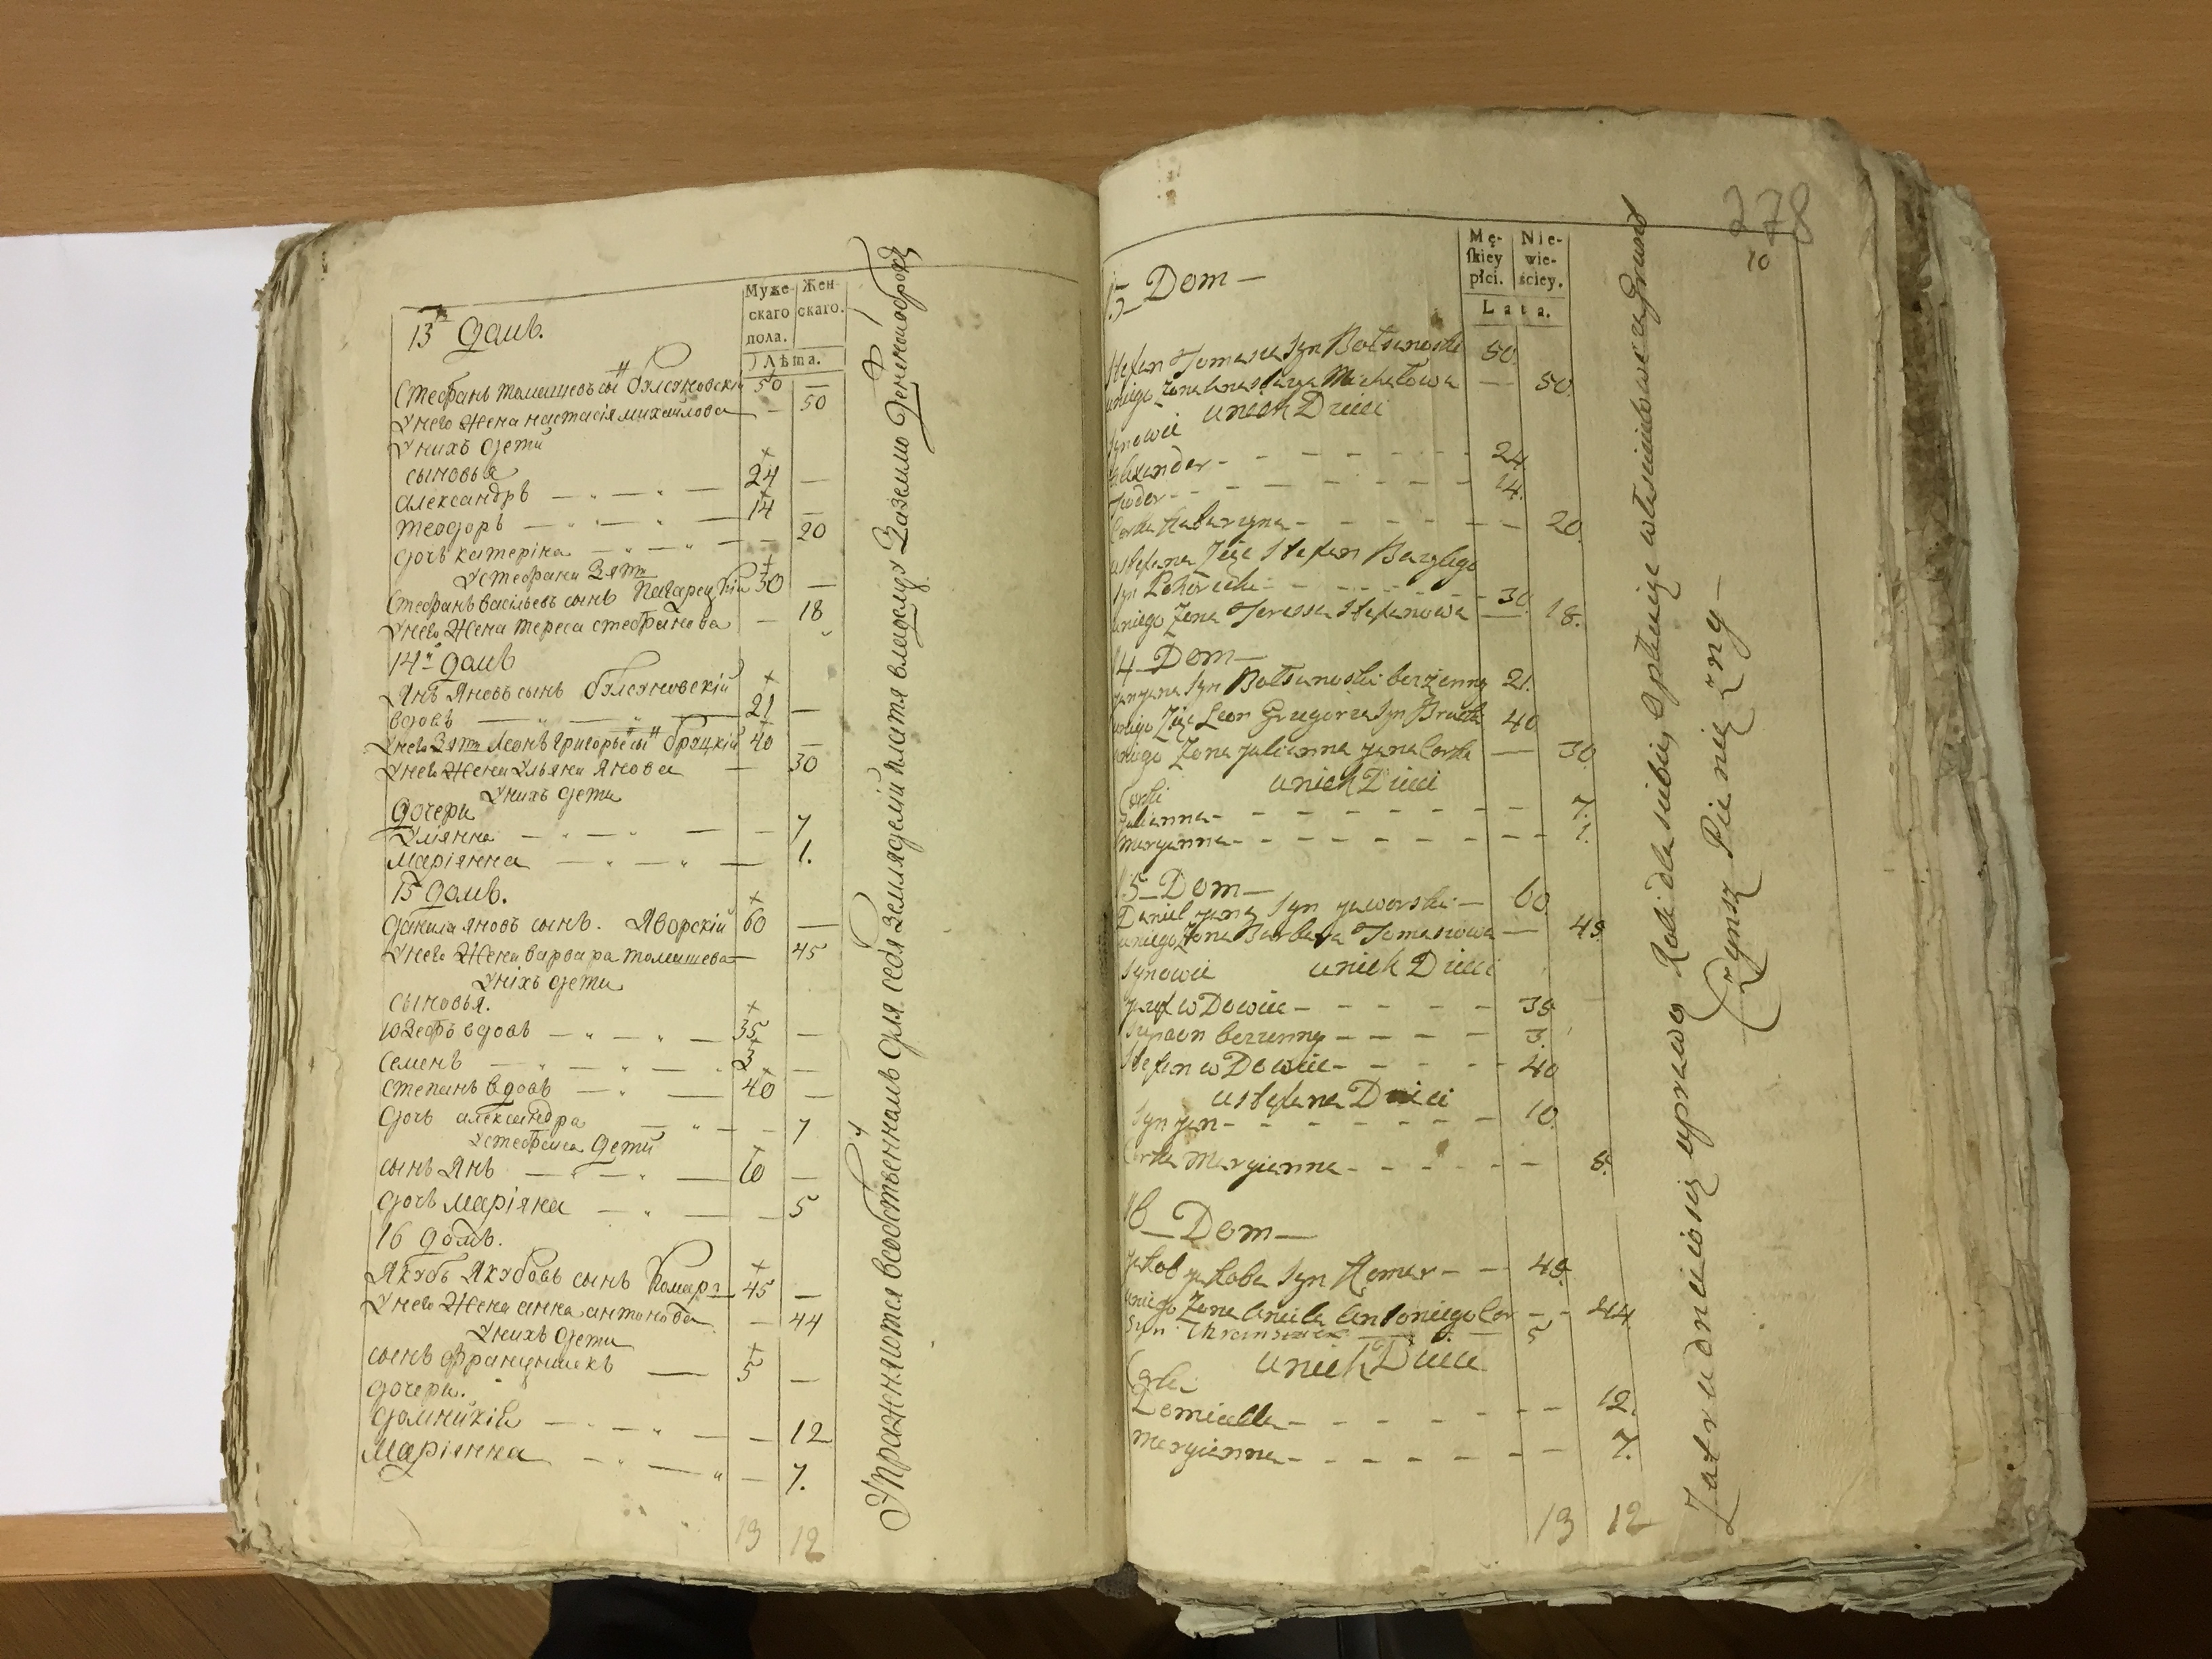 Муже-
скаго
пола.
Жен-
скаго.
Лѣта.
13й домъ.
Стефанъ томашевъ сынъ бялсяновскій 50 —
У него Жена настасія михайлова — 50
У нихъ дети
сыновья
александръ — 24 —
теодоръ — 14 —
дочь катеріна — — 20
У стефана Зять
Стефанъ васильевъ сынъ Пагарецкій 30 —
У него Жена тереса стефанова — 18
14й домъ
Янъ Яновъ сынъ бялсяновскій
вдовъ — 21 —
У него Зять Леонъ григорьевъ сынъ бряцкій 40 —
У него Жена Ульяна Янова — 30
У нихъ дети
дочери
Ульянна — — 7
Маріянна — — 1.
15 домъ.
данила яновъ сынъ. Яворскій 60 —
У него Жена варвара томашева — 45
У ніхъ дети
сыновья.
юзефъ вдовъ — 35 —
семенъ — 3 —
степанъ вдовъ — 40 —
дочь александра — — 7
У стефана дети
сынъ Янъ — 10 —
дочь Маріяна — — 5
16 домъ.
Якубъ Якубовъ сынъ Комаръ 45 —
У него Жена анна антонова — 44
У нихъ дети
сынъ францишекъ — 5 —
дочери.
домникія — — 12
Маріянна — — 7.
13 12
Упражняются всобственномъ для себя Земляделіи платя владелцу Заземлю Денежной оброкъ
278
10
Mę-
ſkiey
płci.
Nie-
wie-
ściey.
Lata.
13 Dom —
Stefan Tomasza Syn Bołsanoski 50.
u niego Zona Anastazya Michałowa — 50.
u nich Dzieci
Synowie
Alexander - - - 24
Fiodor - - - 14.
Corka Katarzyna - - - 20
u Stefana Zięć Stefan Bazylego
Syn Pohorecki - - - 30
u niego Zona Teressa Stefanowa — 18.
14 Dom —
Jan Jana Syn Bołsanoski bezżenny 21.
u niego Zięć Leon Grzegorza Syn Bracki 40
u niego Zona Julianna Jana Corka — 30
u nich Dzieci
Corki
Julianna - - - 7.
Maryanna - - - 1.
15 Dom —
Daniel Jana Syn Jaworski — 60.
u niego Zona Barbara Tomaszowa — 45.
Synowie u nich Dzieci
Jozef w Dowiec - - - 35
Szymon bezzenny - - - 3.
Stefan w Dowiec - - - 40
u Stefana Dzieci
Syn Jan - - - 10
Corka Maryianna - - - 5.
16 Dom —
Jakob Jakoba Syn Komar - - 45
u niego Zona Aniela Antoniego Cor - - 44
Syn 5
u nich Dzieci
Corki
Domicella - - - 12.
Maryianna - - - 7.
13 12
Zatrudnieiąsię uprawą Roli dla siebie, Opłacając włascicielowi za Grunt
Czynsz Pieniężny —